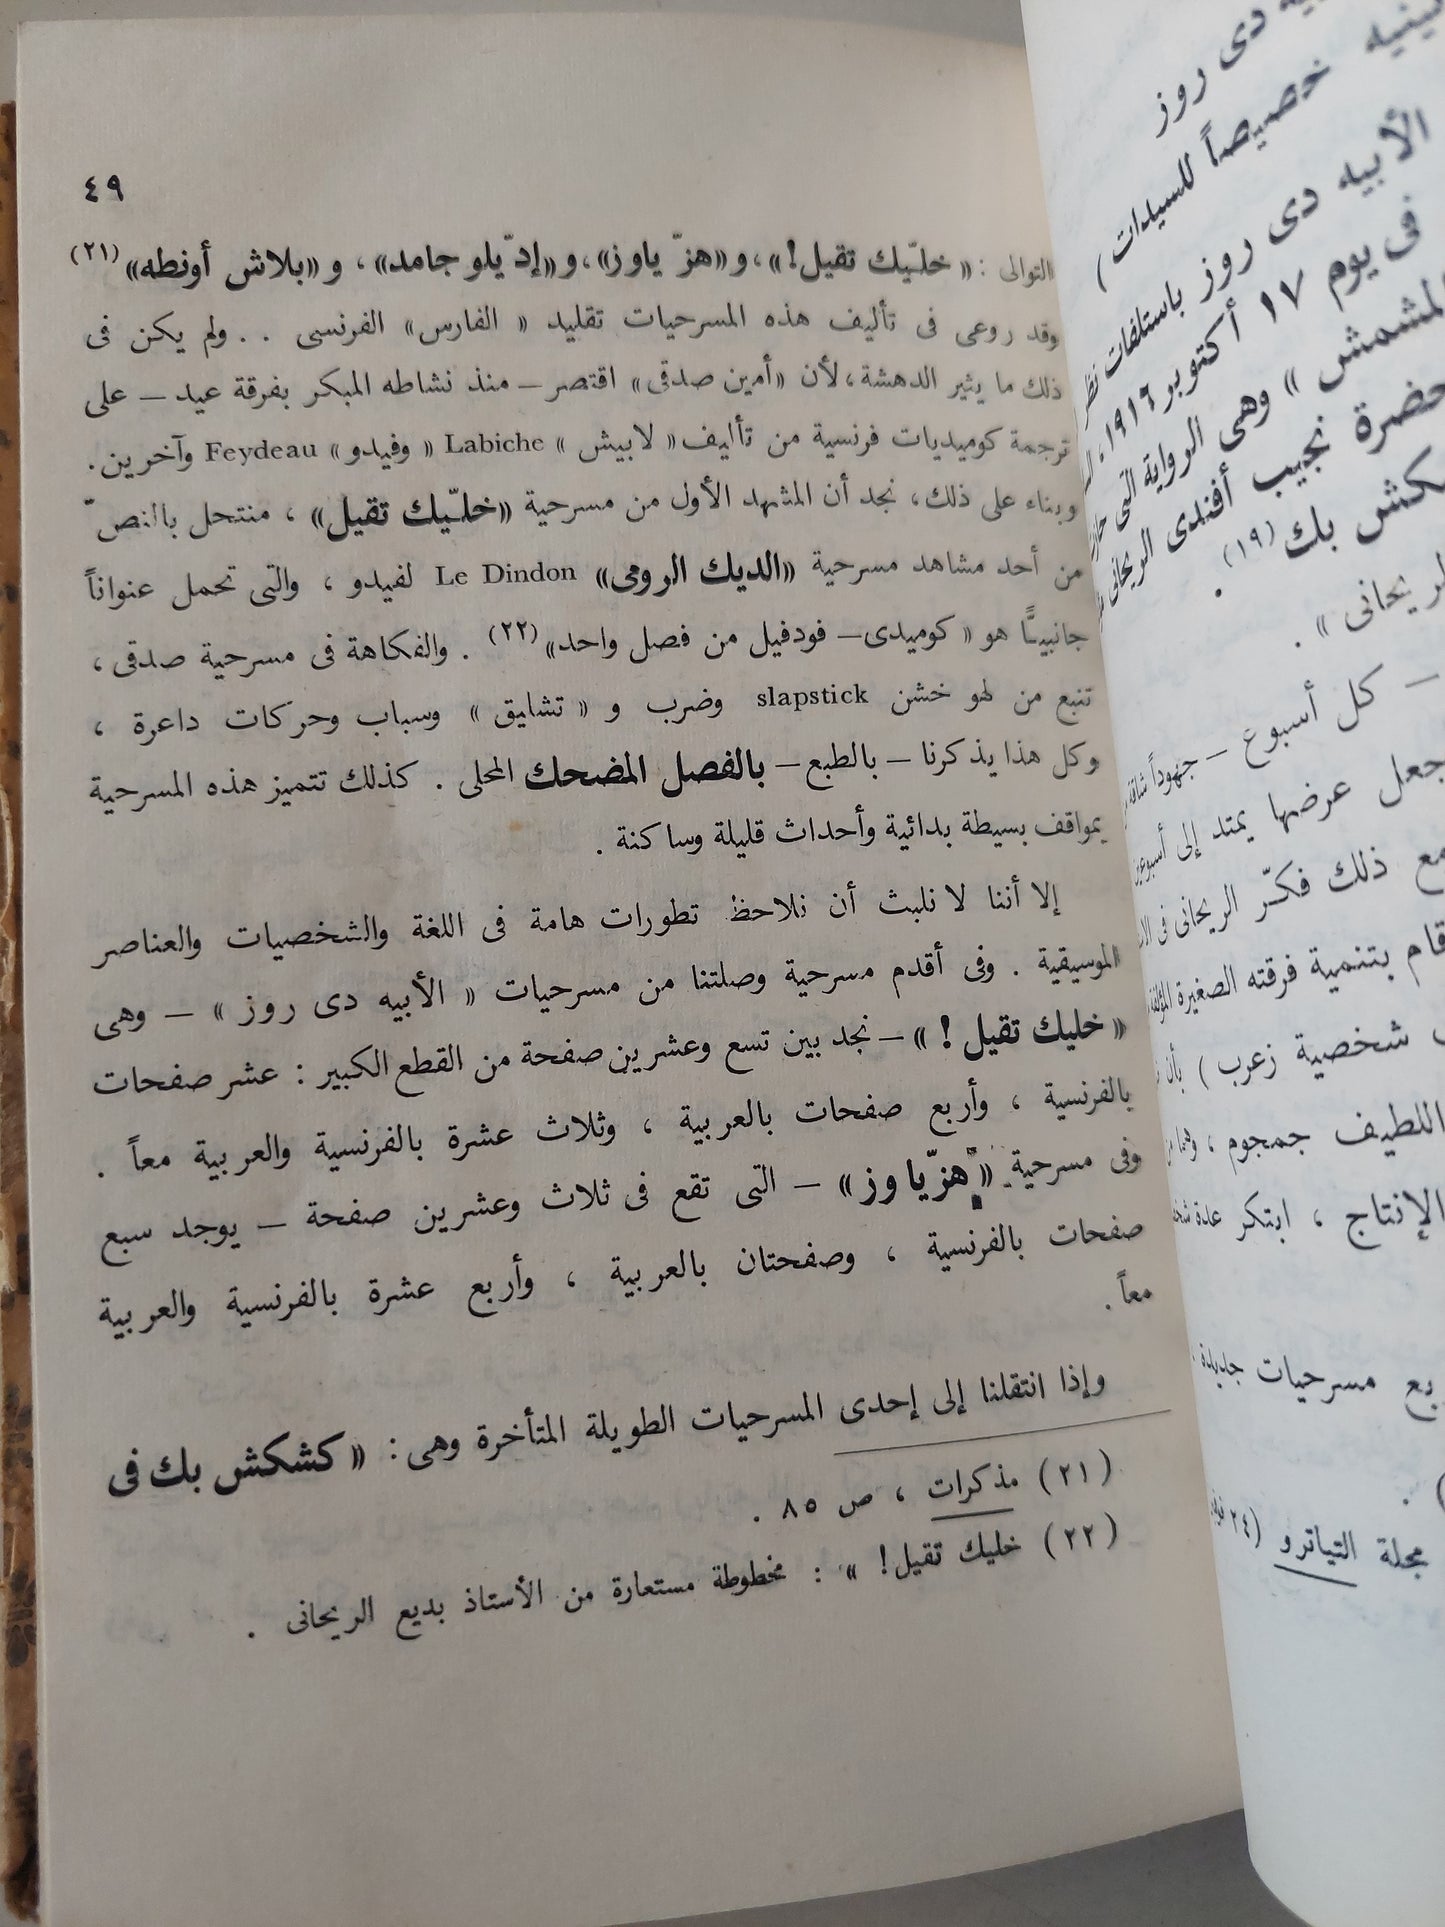 ٤٩
التوالى : « خلّيك تقيل! »، و «هزّ ياوز»، و «إدّيلو جامد» ، و «بلاش أونطه» (٢١)
وقد روعى فى تأليف هذه المسرحيات تقليد « الفارس» الفرنسى . . ولم يكن فى
ذلك ما يثير الدهشة، لأن «أمين صدقى» اقتصر – منذ نشاطه المبكر بفرقة عيد – على
ترجمة كوميديات فرنسية من تأليف « لابيش » Labiche « وفيدو » Feydeau وآخرين.
وبناء على ذلك، نجد أن المشهد الأول من مسرحية «خلّيك تقيل» ، منتحل بالنصّ
من أحد مشاهد مسرحية «الديك الرومى» Le Dindon لفيدو ، والتى تحمل عنواناً
جانبيًّا هو « كوميدى– فودفيل من فصل واحد» (٢٢) . والفكاهة فى مسرحية صدقى ،
تنبع من لهو خشن slapstick وضرب و « تشليق » وسباب وحركات داعرة ،
وكل هذا يذكرنا – بالطبع – بالفصل المضحك المحلى . كذلك تتميز هذه المسرحية
بمواقف بسيطة بدائية وأحداث قليلة وساكنة .
إلا أننا لا نلبث أن نلاحظ تطورات هامة فى اللغة والشخصيات والعناصر
الموسيقية . وفى أقدم مسرحية وصلتنا من مسرحيات « الأبيه دى روز » – وهى
« خليك تقيل ! » – نجد بين تسع وعشرين صفحة من القطع الكبير : عشر صفحات
بالفرنسية ، وأربع صفحات بالعربية ، وثلاث عشرة بالفرنسية والعربية معاً .
وفى مسرحية « هزّ ياوز » – التى تقع فى ثلاث وعشرين صفحة – يوجد سبع
صفحات بالفرنسية ، وصفحتان بالعربية ، وأربع عشرة بالفرنسية والعربية
معاً .
وإذا انتقلنا إلى إحدى المسرحيات الطويلة المتأخرة وهى : « كشكش بك فى
(٢١) مذكرات ، ص ٨٥ .
(٢٢) خليك تقيل! » : مخطوطة مستعارة من الأستاذ بديع الريحانى .
دى روز
خصيصاً للسيدات )
الأبيه دى روز باستلفات نظر
فى يوم ١٧ أكتوبر ١٩١٦ ،
المشمش » وهى الرواية التى
حضرة نجيب أفندى الريحانى
كشكش بك (١٩) .
الريحانى » .
– كل أسبوع – جهوداً شاقة
جعل عرضها يمتد إلى أسبوعين
مع ذلك فكّر الريحانى فى
قام بتنمية فرقته الصغيرة المؤلفة
شخصية زعرب ) بأن
اللطيف جمجوم ،
الإنتاج ، ابتكر عدة
مسرحيات جديدة
مجلة التياترو (٢٤